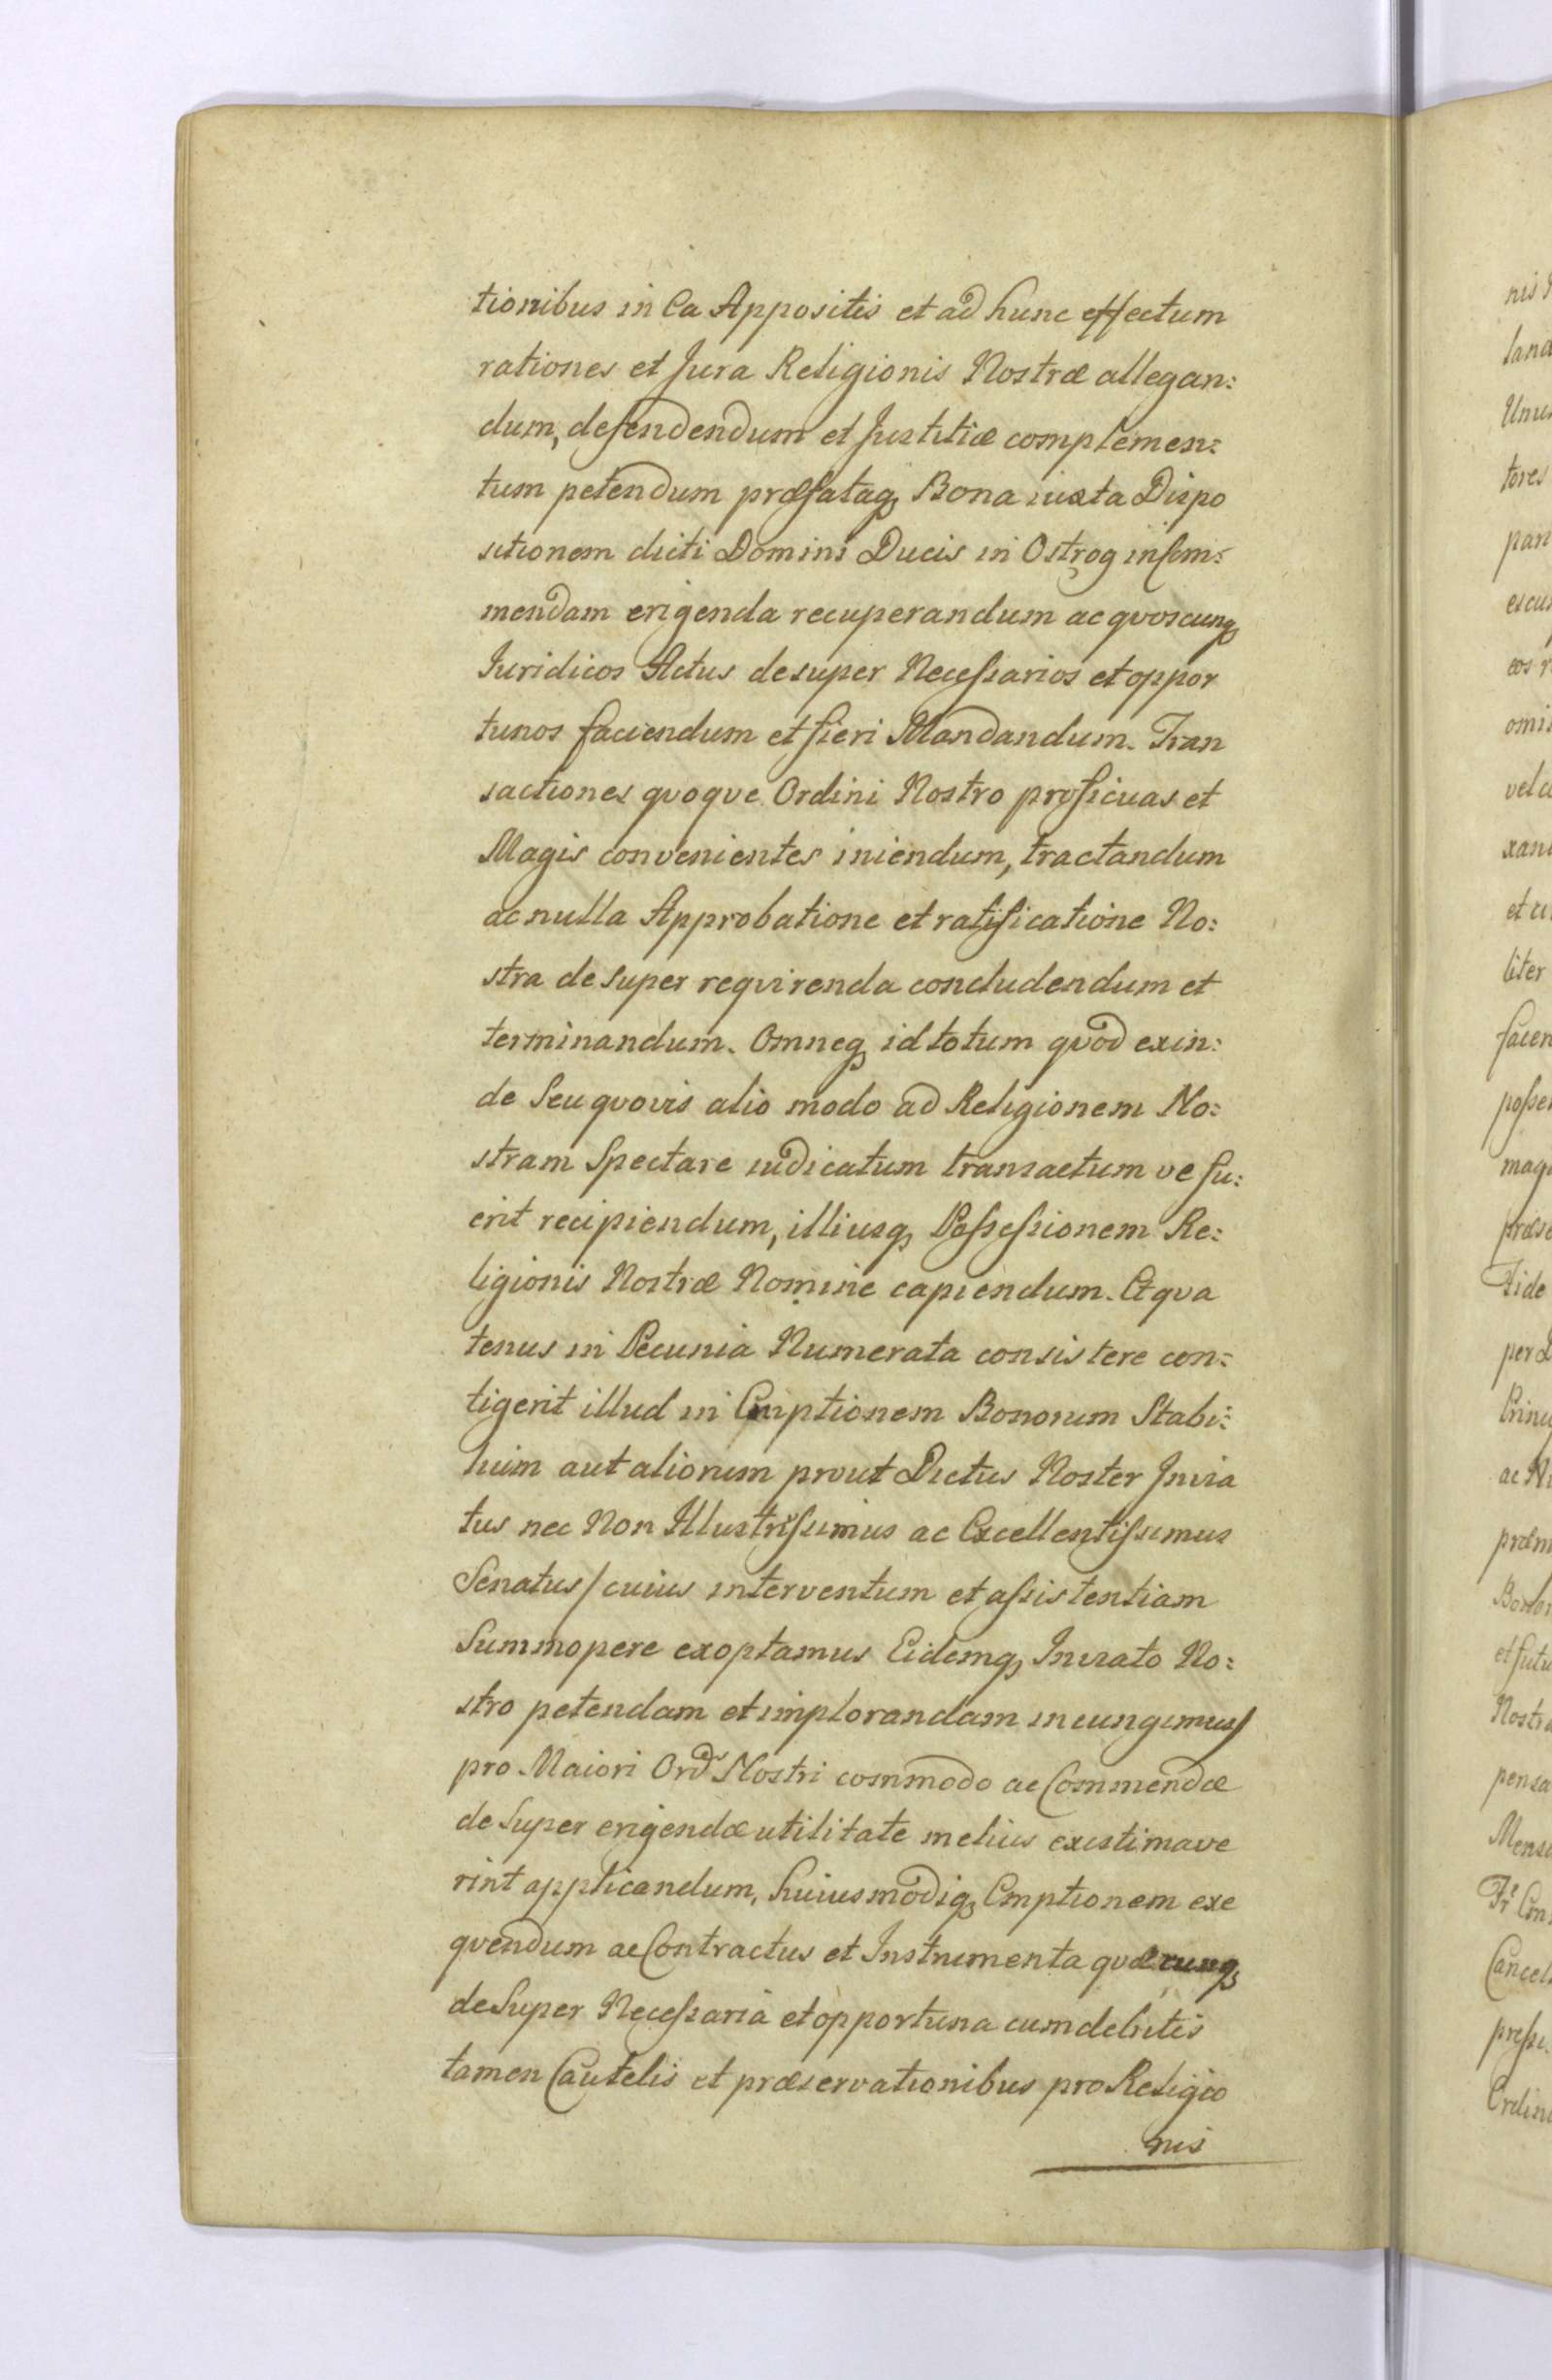 tionibus in Ea Appositis et ad hunc effectum
rationes et Jura Religionis Nostræ allegan:
dum, defendendum et Justitiæ complemen:
tum petendum præfatasq₃ Bona iuxta Dispo
sitionem dicti Domini Ducis in Ostrog in
mendam erigenda recuperandum ac qvoscunq₃
Juridicos Actus desuper Neceſsarios et oppor
tunos faciendum et fieri Mandandum. Tran
sactiones qvoqve Ordini Nostro proficuas et
Magis convenientes iniendum, tractandum
ac nulla Approbatione et ratificatione No:
stra desuper reqvirenda concludendum et
terminandum. Omneq₃ id totum qvod exin:
de Seu qvovis alio modo ad Religionem No:
stram Spectare iudicatum transactum ve fu:
erit recipiendum, illiusq₃ Poſseſsionem Re:
ligionis Nostræ Nomine capiendum. Et qva
tenus in Pecunia Numerata consistere con:
tigerit illud in Emptionem Bonorum Stabi:
lium aut aliorum prout Dictus Noster Jnvia
tus nec Non Illustriſsimus ac Excellentiſsimus
Senatus / cuius interventum et aſsistentiam
Summopere exoptamus Eidemq₃ Inviato No:
stro petendam et implorandam iniungimus /
pro Maiori Ord͞ Nostri commodo ac Commendæ
deSuper erigendæ utilitate melius existimave
rint applicandum, huiusmodiq₃ Emptionem exe
qvendum ac Contractus et Instrumenta qvæcunq₃
deSuper Neceſsaria et opportuna cum debitis
tamen Cautelis et præservationibus pro Religio
nis
nis
land
Unu
tores
pan
eos
omi
vel
xan
et
liter
facen
poſse
mag
Fide
per
ac
præm
Nostr
pensa
Mens
Cancel
preſsi
Ordin